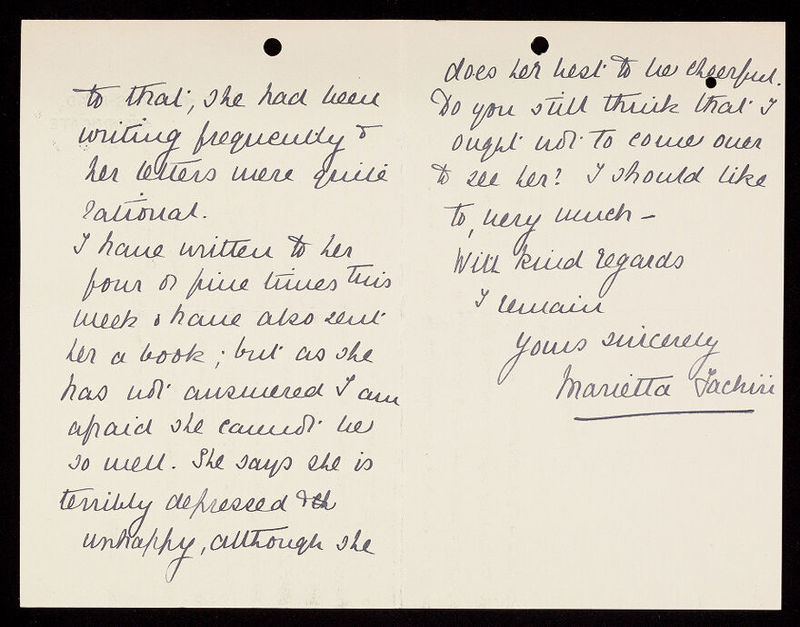 to that, she had been
writing frequently &
her letters were quite
rational.
I have written to her
four or five times this
week & have also sent
her a book; but as she
has not answered I am
afraid she cannot be
so well. She says she is
terribly depressed &
unhappy, although she
does her best to be cheerful.
Do you still think that I
ought not to come over
to see her? I should like
to, very much –
With kind regards
I remain
yours sincerely
Marietta Jachiri